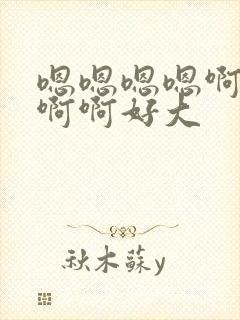 嗯嗯嗯嗯啊
啊啊好大
秋木蘇y